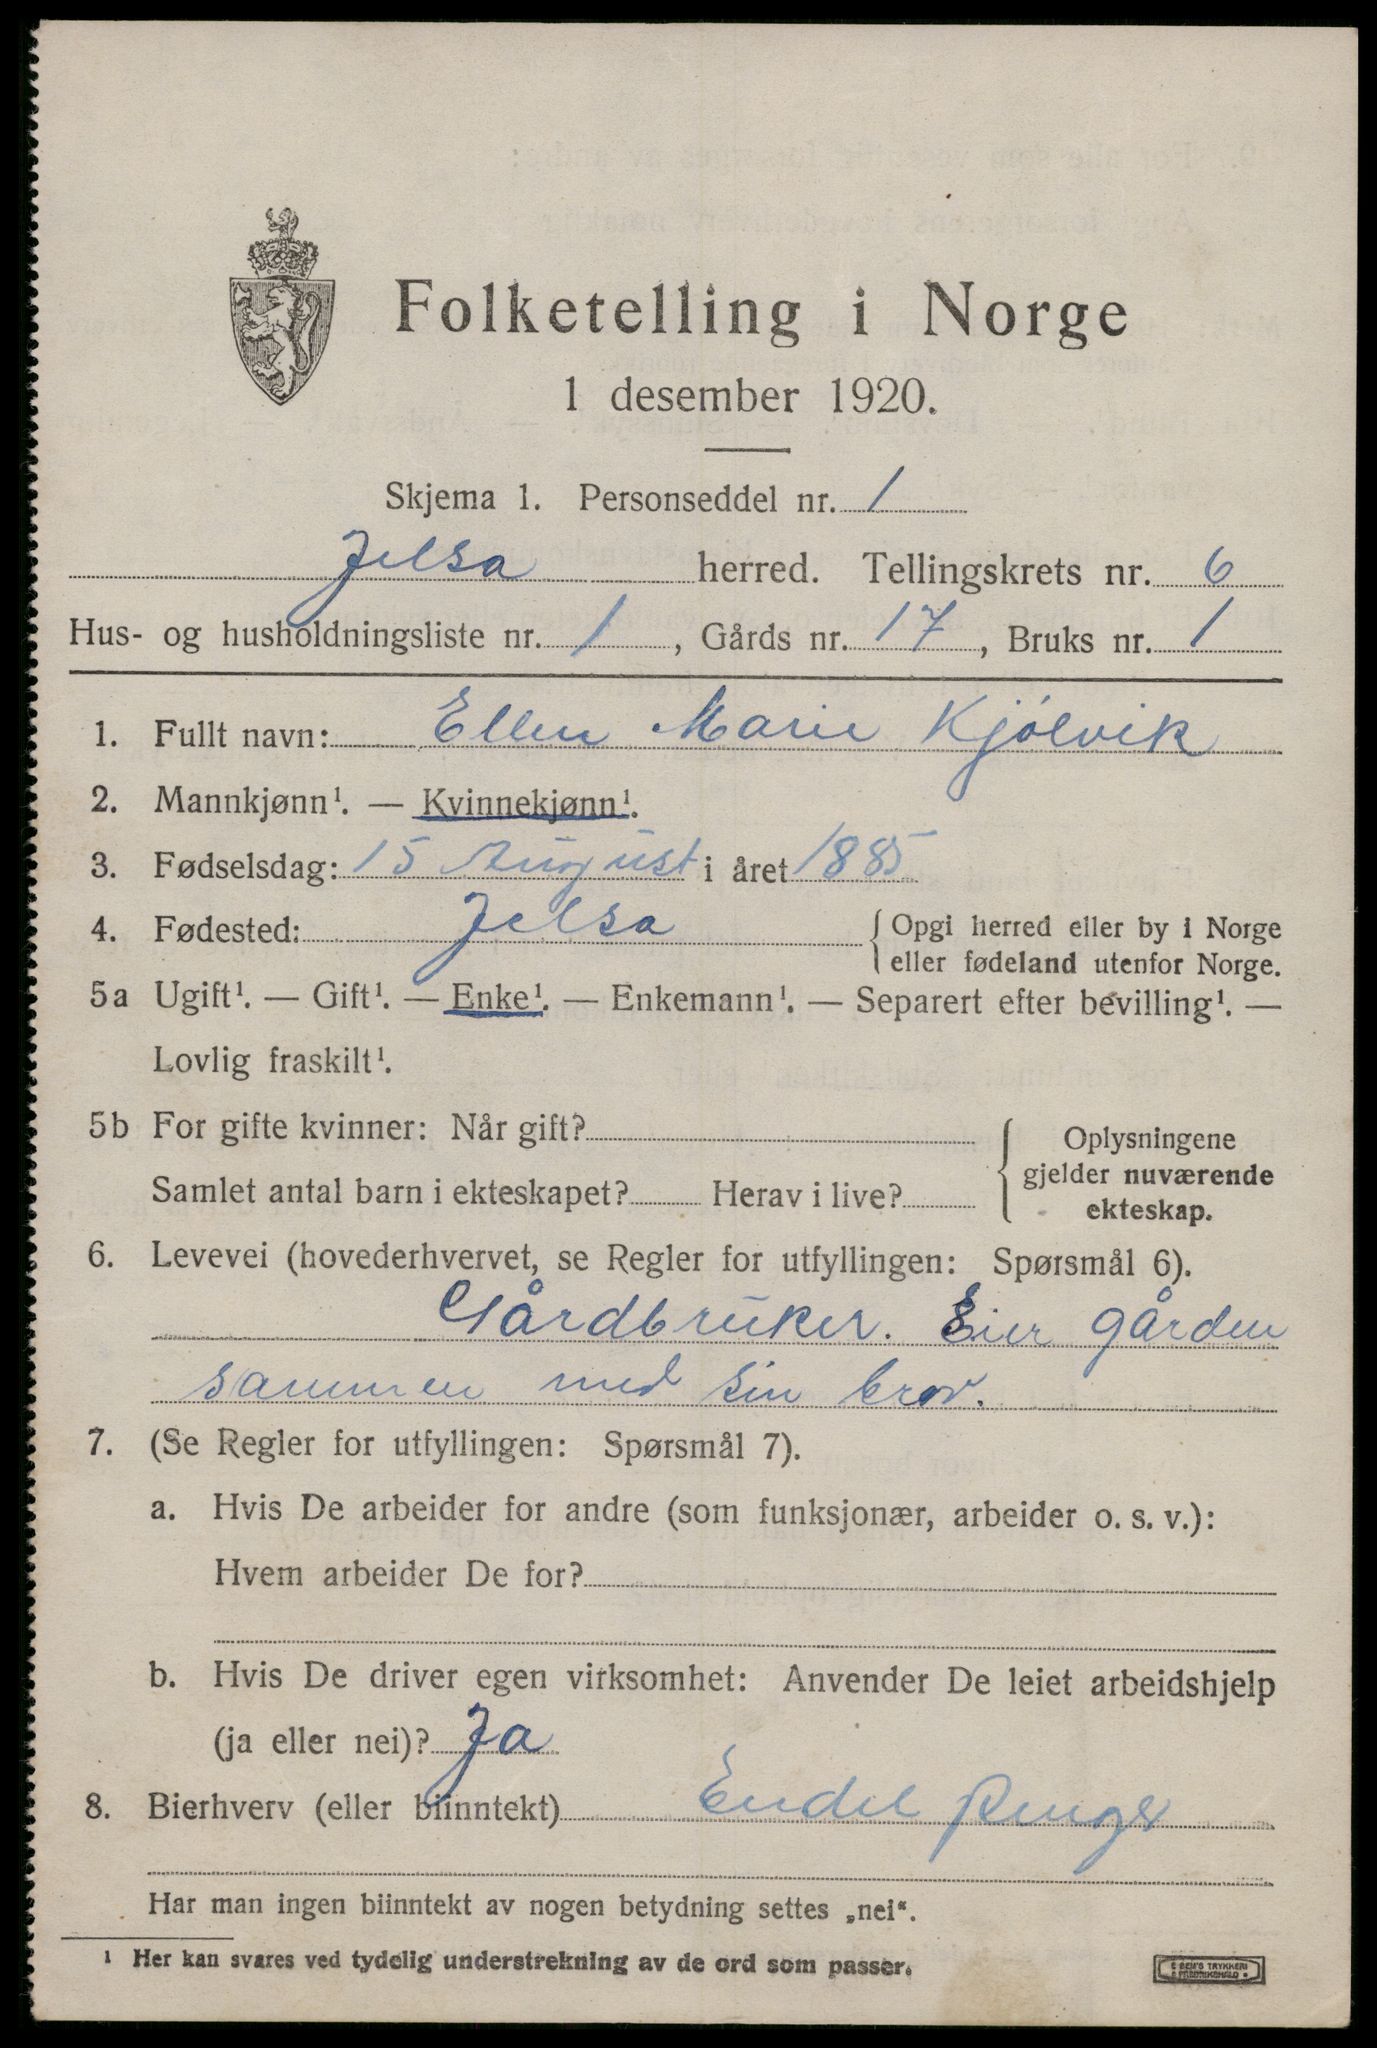 Folketelling i Norge
1 desember 1920.
Skjema 1. Personseddel nr. 1
Jelsa herred. Tellingskrets nr. 6
Hus- og husholdningsliste nr. 1, Gårds nr. 17, Bruks nr. 1
1. Fullt navn: Ellen Marie Kjölvik
2. Mannkjønn¹. — Kvinnekjønn¹.
3. Fødselsdag: 15 August i året 1885
4. Fødested: Jelsa { Opgi herred eller by i Norge
eller fødeland utenfor Norge.
5a Ugift¹. — Gift¹. — Enke¹. — Enkemann¹. — Separert efter bevilling¹. —
Lovlig fraskilt¹.
5b For gifte kvinner: Når gift?
Samlet antal barn i ekteskapet? Herav i live?
{ Oplysningene
gjelder nuværende
ekteskap.
6. Levevei (hovederhvervet, se Regler for utfyllingen: Spørsmål 6).
Gårdbruker. Eier gården
sammen med sin bror.
7. (Se Regler for utfyllingen: Spørsmål 7).
a. Hvis De arbeider for andre (som funksjonær, arbeider o. s. v.):
Hvem arbeider De for?
b. Hvis De driver egen virksomhet: Anvender De leiet arbeidshjelp
(ja eller nei)? Ja
8. Bierhverv (eller biinntekt) Endel
Har man ingen biinntekt av nogen betydning settes „nei“.
¹ Her kan svares ved tydelig understrekning av de ord som passer.